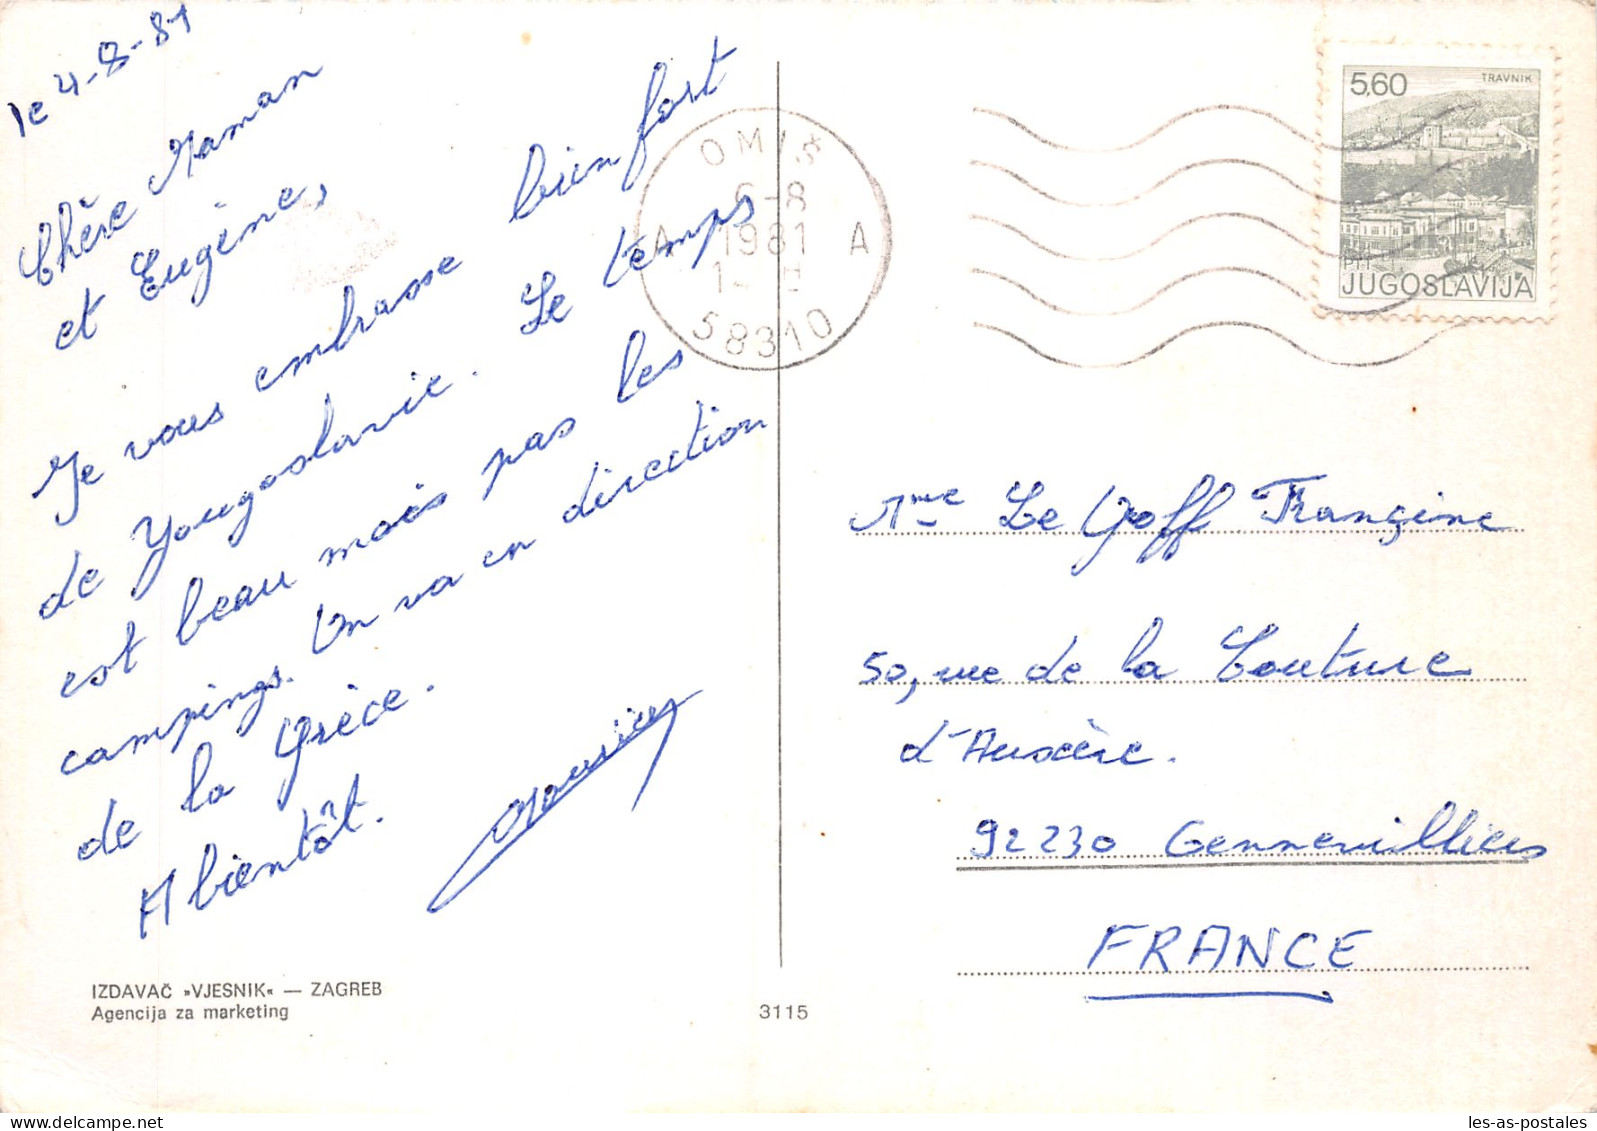 le 4-8-81
Chère Maman
et Eugène,
Je vous embrasse bien fort
de Yougoslavie. Le temps
est beau mais pas les
campings. On va en direction
de la Grèce.
A bientôt.
IZDAVAČ »VJESNIK« — ZAGREB
Agencija za marketing
3115
OMIŠ
6-8
A 1981 A
58310
5,60 TRAVNIK
PTT
JUGOSLAVIJA
Mme Le Goff Frangine
50, rue de la Couture
d'Auxère.
92230 Gennevilliers
FRANCE
les-as-postales